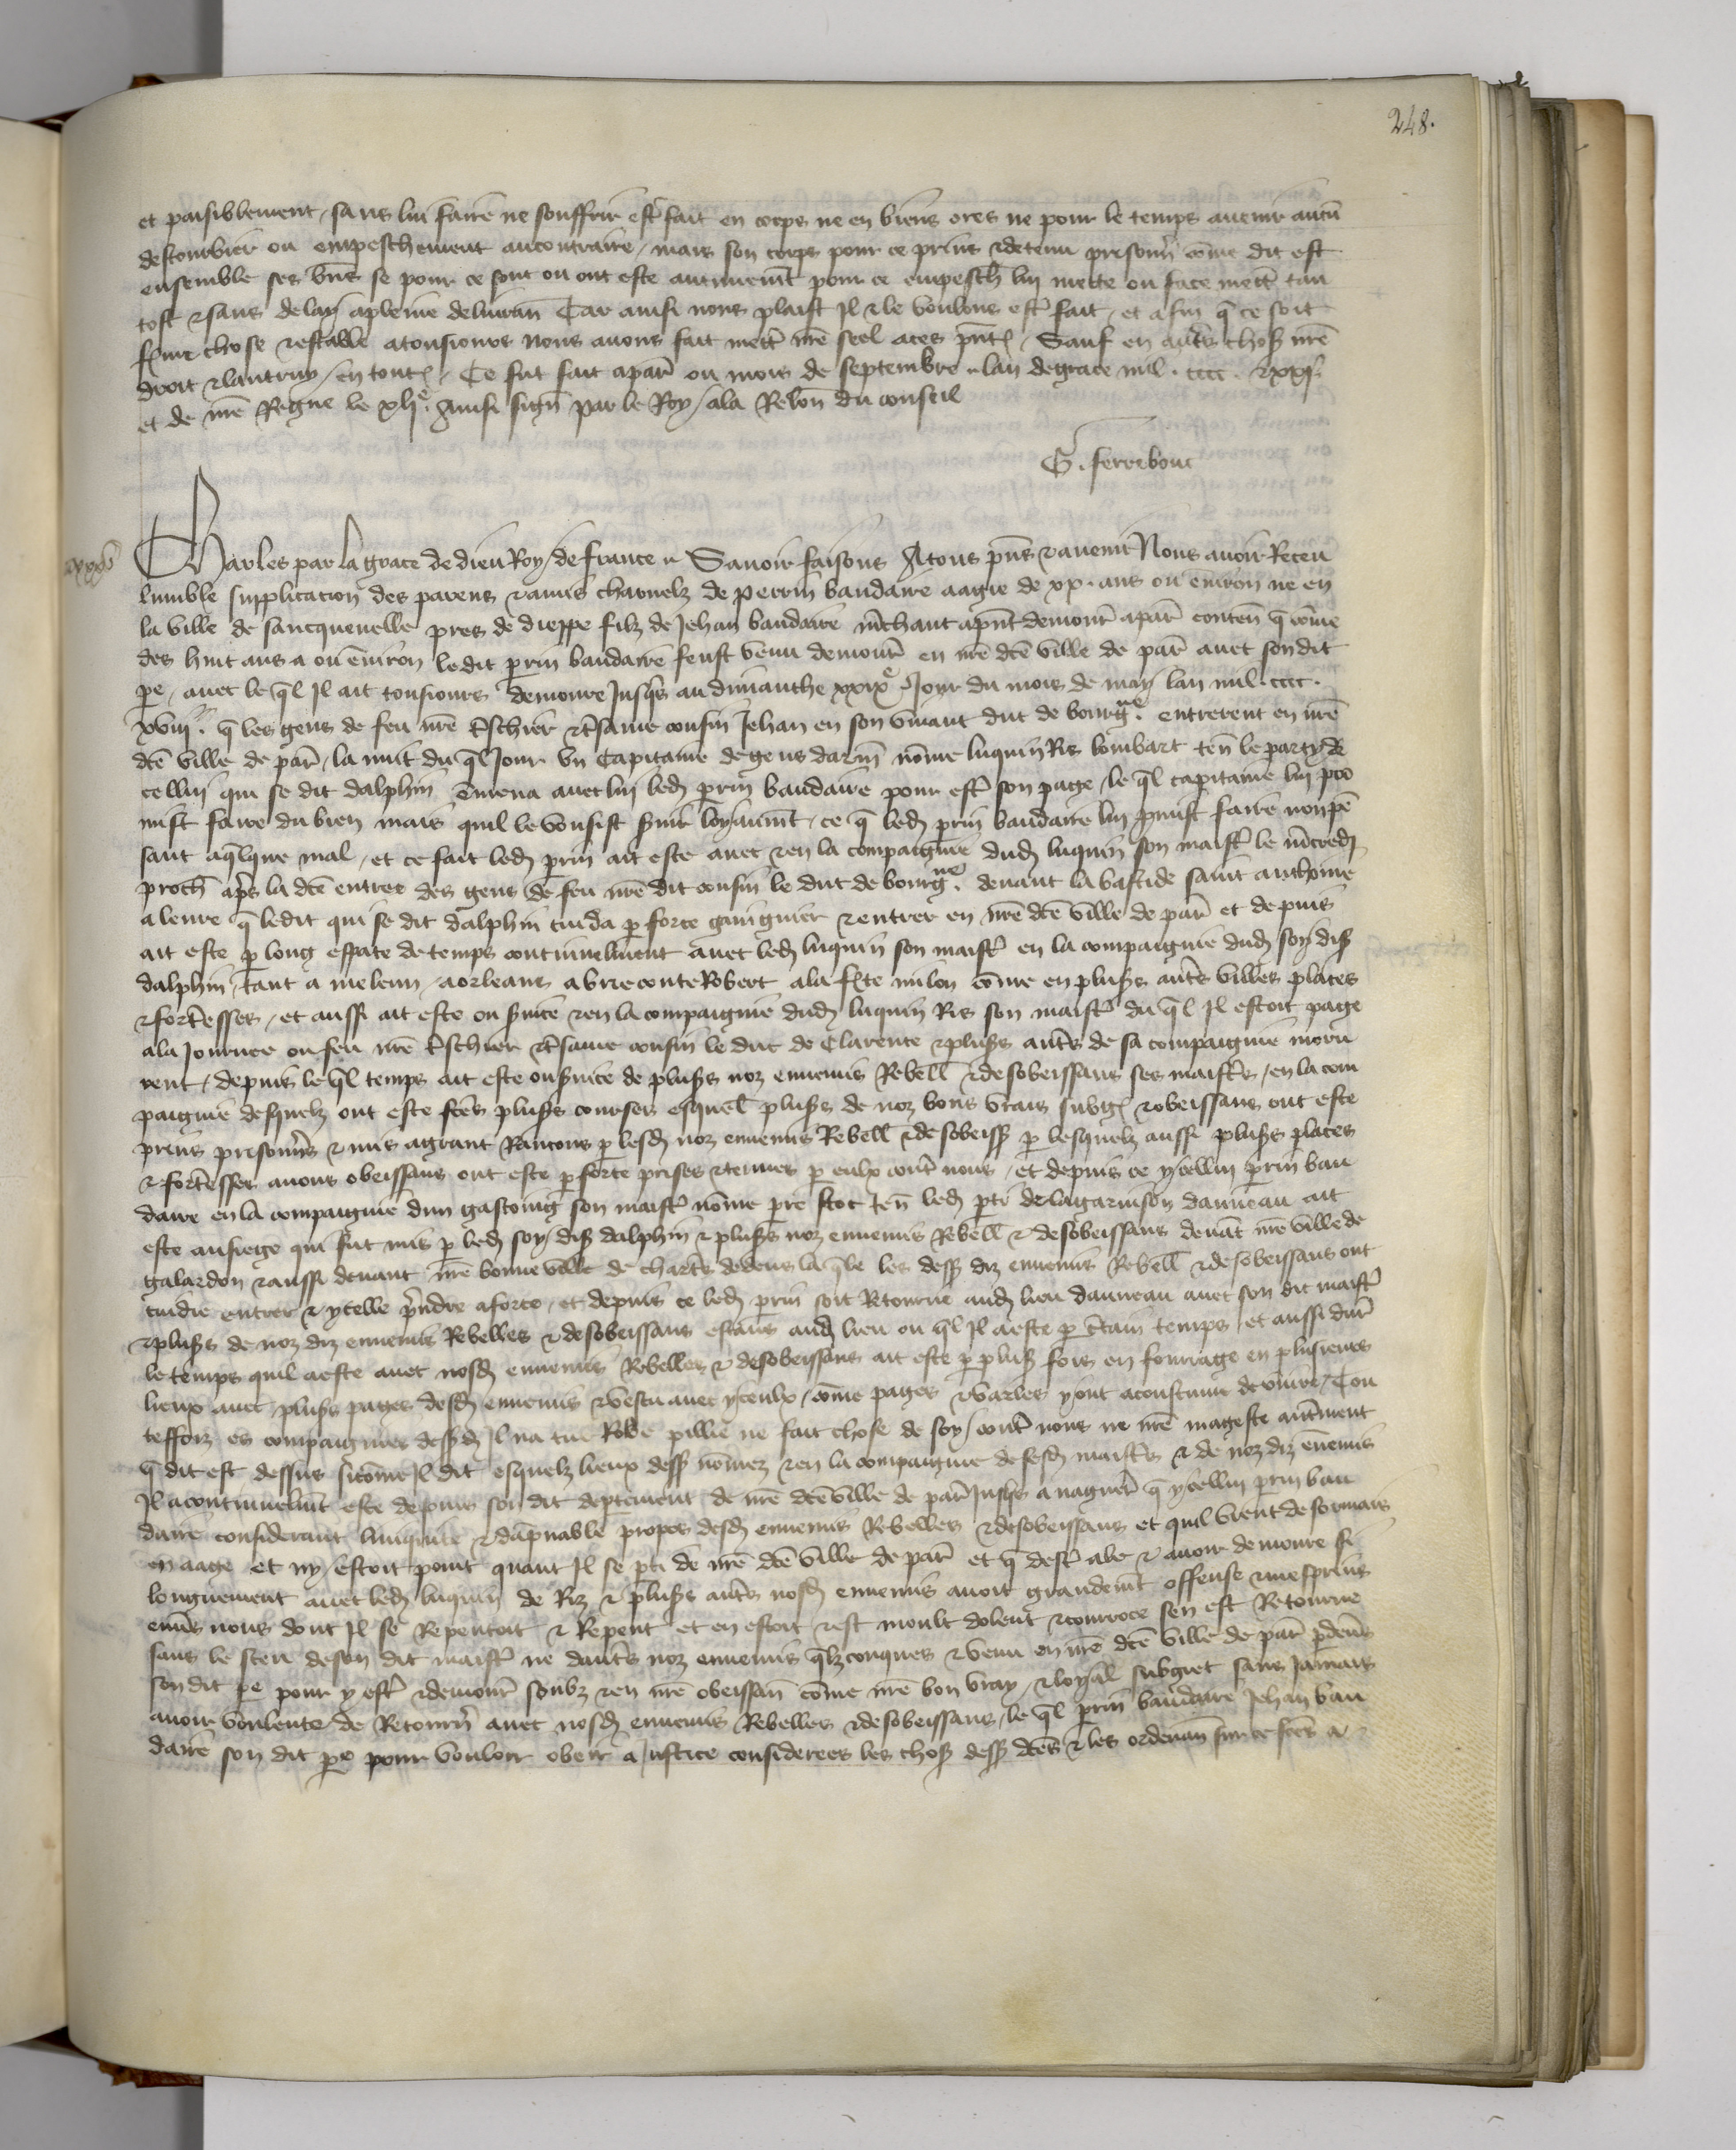 248.
et paisiblement, sans lui faire ne souffrir estr̄ fait en corps ne en biens ores ne pour le temps auenir aucū
destourbier ou empeschement aucontraire, mais son corps pour ce prins & detenu prisonn̄ cōme dit est
ensemble ses bn̄s se pour ce sont ou ont este autrement pour ce empesch̄ lui mette ou face mett̄ tan
tost & sans delay apleine deliuran̄ Car ainsi nous plaist Il & le voulons estr̄ fait, et afin q̄ ce soit
ferme chose & estable atousiours Nous auons fait mett̄ nr̄e seel aces pn̄tes, Sauf en autr̄s choses nr̄e
droit & lautruy, en toutes, Ce fut fait apar̄ ou mois de septembre lan degrace mil. cccc. & xxj.
et de nr̄e Regne le xlj.e Ainsi sign̄ Par le Roy, ala Relon̄ du conseil
G. ferrebouc
Charles par la grace de dieu Roy de france Sauoir faisons Atous pn̄s & auenir Nous auoir Receu
lumble supplicacion des parens & amis charnelz de perrin baudaire aagie de xx. ans ou enuiron ne en
la ville de sancqueuelle pres de dieppe filz de Jehan baudaire m̄chant apn̄t demour̄ apar̄ conten̄ q̄ cōme
des huit ans a ou enuiron ledit p̄rin baudaire feust venu demour̄ en nr̄e dc̄e ville de par̄ auec son dit
pe, auec le q̄l Il ait tousiours demoure Jusq̄s au dimanche xxixe Jour du mois de may lan mil. cccc.
xviij. q̄ les gens de feu nr̄e t̄schier & t̄same cousin Jehan en son viuant duc de bourg.ne entrerent en nr̄e
dc̄e ville de par̄, la nuit du q̄l Jour vn Capitaine de gens darm̄ nōme luquin Ris lombart ten̄ le party de
cellui qui se dit dalphin ēmena auec lui led̄ p̄rin baudaire pour estr̄ son page, le q̄l capitaine lui pro
mist faire du bien mais quil le voulsist seruir loyaumt̄, ce q̄ led̄ p̄rin baudaire lui p̄mist faire non pē
sant a q̄lque mal, et ce fait led̄ p̄rin ait este auec & en la compaignie dud̄ luquin son maistr̄ le m̄cred̄
proch̄ ap̄s la dc̄e entree des gens de feu nr̄e dit cousin le duc de bourg.ne deuant la bastide saint anthoine
aleure q̄ ledit qui se dit dalphin cuida p̄ force gaingnier & entrer en nr̄e dc̄e ville de par̄ et depuis
ait este p̄ long espace de temps continuelment auec led̄ luquin son maistr̄ en la compaignie dud̄ soy dis̄
dalphin, tant a meleun, aorleans abrieconteRobert ala ferte milon cōme en pluss̄ autr̄s villes places
& forteresses, et aussi ait este ou seruice & en la compaignie dud̄ luquin Ris son maistr̄ du q̄l Il estoit page
ala Journee ou feu nr̄e t̄schier & t̄same cousin le duc de Clarence & pluss̄ autr̄s de sa compaignie moru
rent, depuis le q̄l temps ait este ou seruice de pluss̄ noz ennemis Rebell̄ & desobeissans ses maistr̄s, en la com
paignie desquelz ont este fc̄es pluss̄ courses esquel̄ pluss̄ de noz bons vrais subgez & obeissans ont este
prins prisonn̄s & mis agrant Rancons p̄ lesd̄ noz ennemis Rebell̄ & desobeiss̄ p̄ lesquelz aussi pluss̄ places
& forteresses anous obeissans ont este p̄ force prises & tenues p̄ eulx contr̄ nous, et depuis ce ycellui p̄rin bau
daire en la compaignie dun gascoing son maistr̄ nōme pre stoc ten̄ led̄ p̄ti de lagarnison dauneau ait
este ausiege qui fut mis p̄ led̄ soy dis̄ dalphin & pluss̄ noz ennemis Rebell̄ & desobeissans deuāt nr̄e ville de
galardon & aussi deuant nr̄e bonne ville de chartr̄s dedens la q̄le les dess̄ diz ennemis Rebell̄ & desobeissans ont
cuidie entrer & ycelle pr̄ndre aforce, et depuis ce led̄ p̄rin soit Retourne aud̄ lieu dauneau auec son dit maistr̄
& pluss̄ de noz diz ennemis Rebelles & desobeissans estans aud̄ lieu ou q̄l Il aeste p̄ c̄tain temps, et aussi dur̄
le temps quil aeste auec nosd̄ ennemis Rebelles & desobeissans ait este p̄ pluss̄ fois en fourrage en plusieurs
lieux auec pluss̄ pages desd̄ ennemis & vescu auec yceulx, cōme pages & varles y ont acoustume de viure, Tou
teffoiz es compaignies dessd̄ Il na tue Robe pillie ne fait chose de soy, contr̄ nous ne nr̄e mageste autrement
q̄ dit est dessus sicōme Il dit esquelz lieux dess̄ nōmez & en la compaignie de sesd̄ maistr̄s & de noz diz ennemis
Il a continuelmt̄ este depuis son dit deptement de nr̄e dc̄e ville de par̄ Jusq̄s a nagaer̄ q̄ ycellui p̄rin bau
daire considerant liniquite & dāpnable propos desd̄ ennemis Rebelles & desobeissans et quil vient desormais
en aage et ny estoit point quant Il se p̄ti de nr̄e dc̄e ville de par̄ et q̄ destr̄ ale & auoir demoure si
longuement auec led̄ luquin de Riz & pluss̄ autr̄s nosd̄ ennemis auoit grandemt̄ offense & mesprins
enu̅s nous dont Il se Repentoit & Repent et en estoit & est moult dolent & courroce sen est Retourne
sans le sceu deson dit maistr̄ ne dautr̄s noz ennemis q̄lzconques & venu en nr̄e dc̄e ville de par̄ p̄deu̅s
son dit pe pour y estr̄ & demour̄ soubz & en nr̄e obeissan̄ cōme nr̄e bon vray, & loyal subgiet sans Jamais
auoir voulente de Retourn̄ auec nosd̄ ennemis Rebelles & desobeissans, le q̄l p̄rin baudaire Jehan bau
daire son dit pe pour vouloir obeir a Justice considerees les chos̄ dess̄ dc̄es & les ordenan̄ sur ce fc̄es a